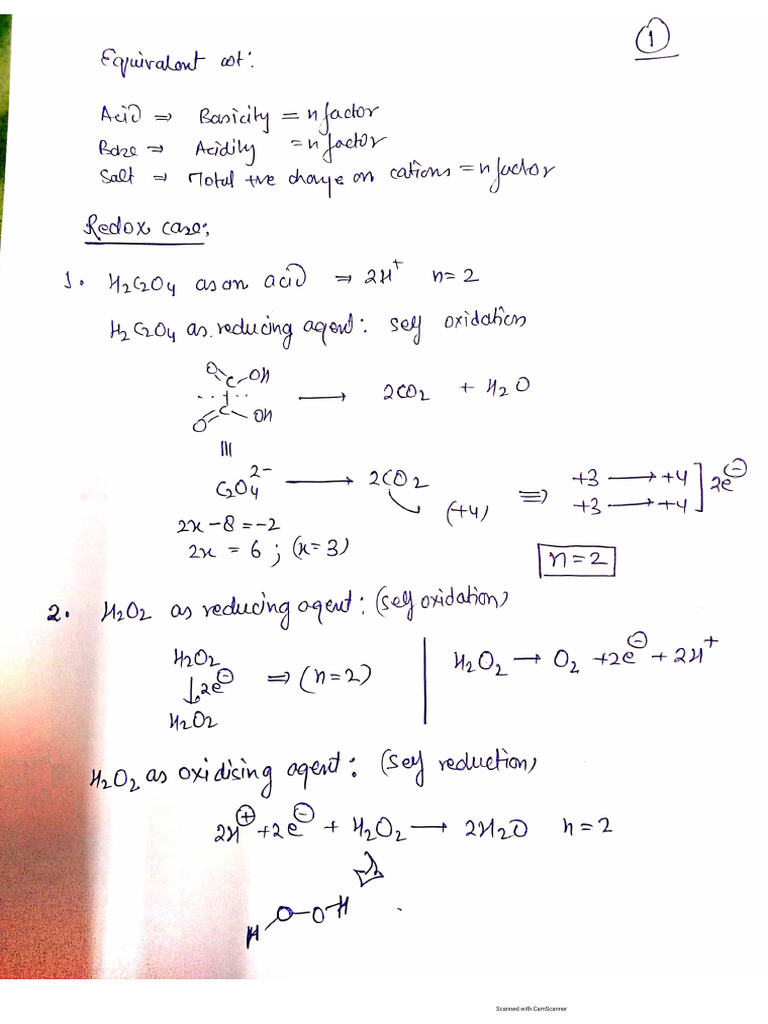 1
Equivalent wt:
Acid ⇒ Basicity = n factor
Base ⇒ Acidity = n factor
Salt ⇒ Total +ve charge on cations = n factor
Redox case:
1. H2C2O4 as an acid ⇒ 2H+ n=2
H2C2O4 as reducing agent: self oxidation
O=C-OH
O=C-OH ⟶ 2CO2 + H2O
|||
C2O4^2- ⟶ 2CO2 (+4) ⇒ +3 ⟶ +4
+3 ⟶ +4 ] 2e⊖
2x-8=-2
2x = 6 ; (x=3)
n=2
2. H2O2 as reducing agent: (self oxidation)
H2O2
↓2e⊖ ⇒ (n=2)
H2O2
H2O2 → O2 + 2e⊖ + 2H+
H2O2 as oxidising agent: (self reduction)
2H⊕ + 2e⊖ + H2O2 ⟶ 2H2O n=2
H O-OH
Scanned with CamScanner